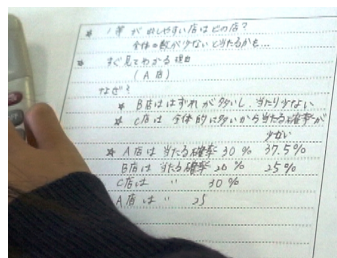 * 1等が出しやすい店はどの店?
全体の数が少ないと当たるかも…
* すぐ見てわかる理由
(A店)
なぜ?
* B店ははずれが多いし、当たり少ない
* C店は全体的に多いから当たる確率が
少ない
* A店は 当たる確率 30% 37.5%
B店は 当たる確率 20% 25%
C店は 〃 30%
A店は 〃 25